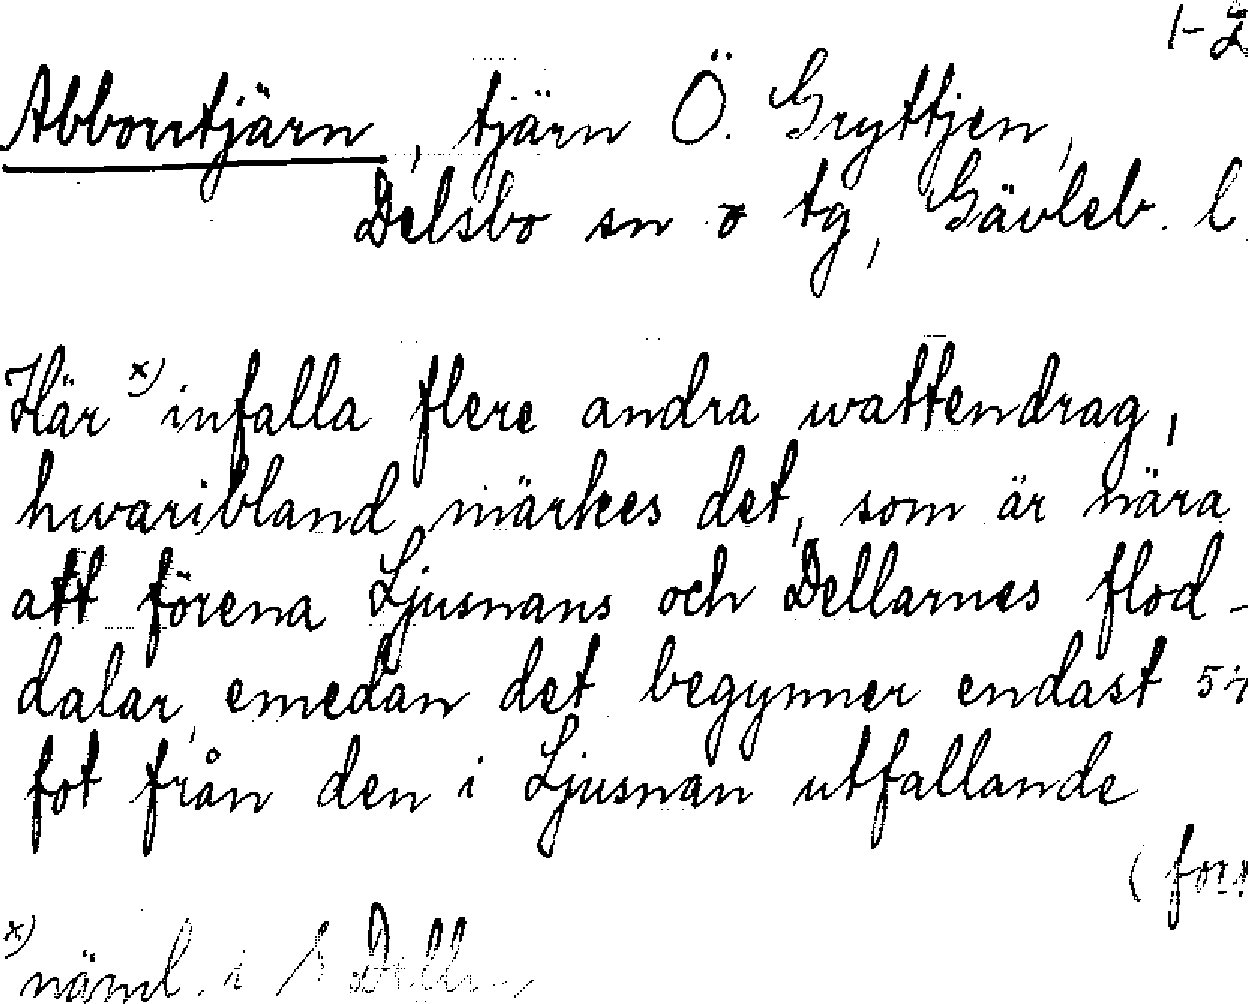 1-2
Abborrtjärn, tjärn Ö. Gryttjen,
Delsbo sn o tg, Gävleb. l.
Här x) infalla flere andra wattendrag,
hwaribland märkes det, som är nära
att förena Ljusnans och Dellarnes flod-
dalar, emedan det begynner endast
fot från den i Ljusnan utfallande
(
x)
näml. i S Dellen